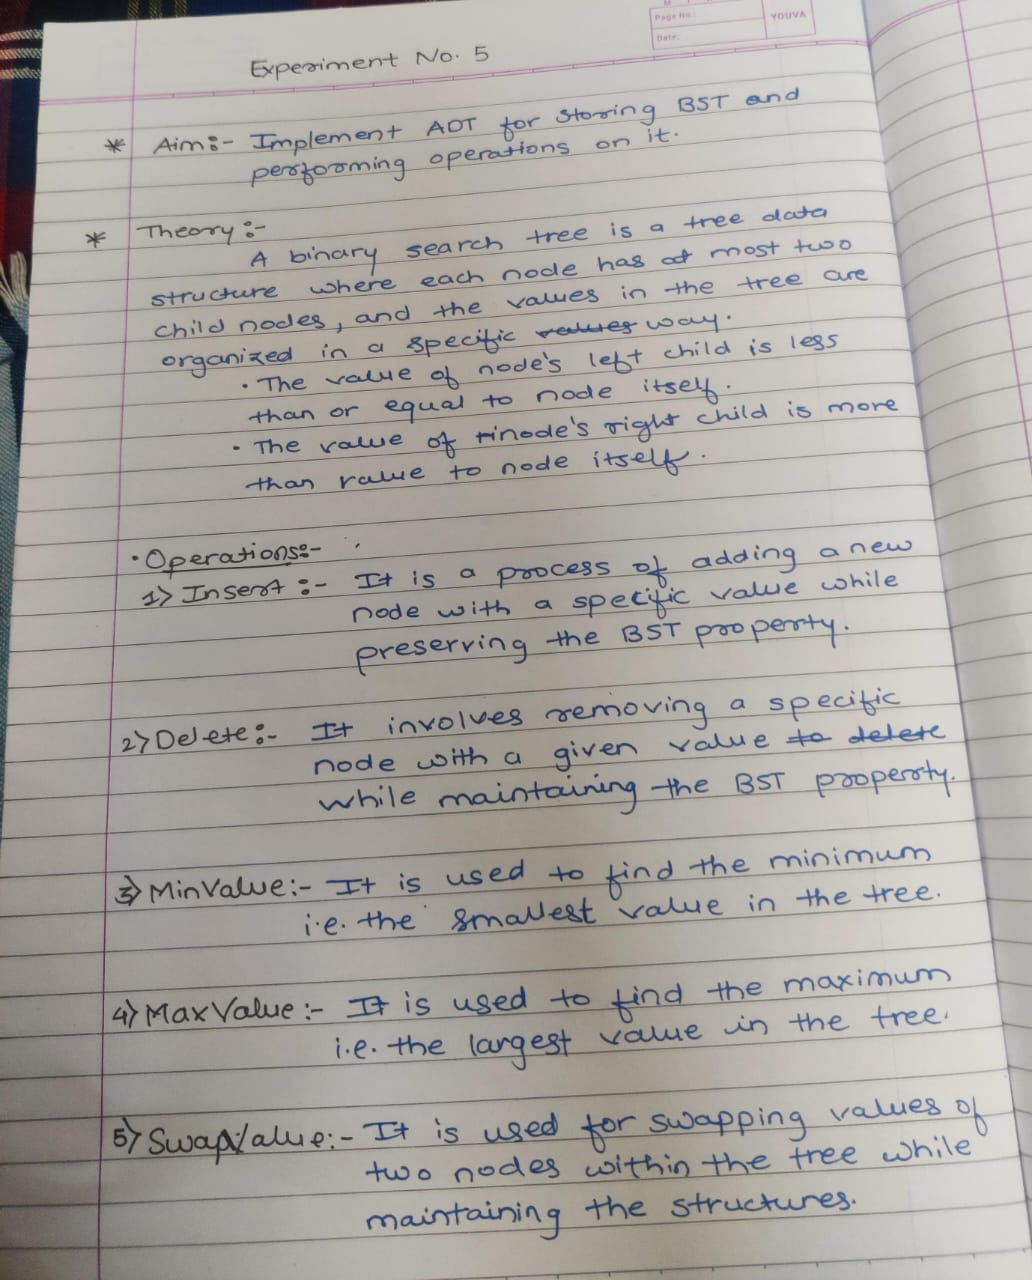 Page No.:
YOUVA
Date:
Experiment No. 5
* Aim:- Implement ADT for storing BST and
performing operations on it.
* Theory:-
A binary search tree is a tree data
structure where each node has at most two
child nodes, and the values in the tree are
organized in a specific values way.
• The value of node's left child is less
than or equal to node itself.
• The value of rinode's right child is more
than value to node itself.
• Operations:-
1) Insert :- It is a process of adding a new
node with a specific value while
preserving the BST property.
2) Delete:- It involves removing a specific
node with a given value to delete
while maintaining the BST property.
3) MinValue:- It is used to find the minimum
i.e. the smallest value in the tree.
4) MaxValue:- It is used to find the maximum
i.e. the largest value in the tree.
5) SwapValue:- It is used for swapping values of
two nodes within the tree while
maintaining the structures.